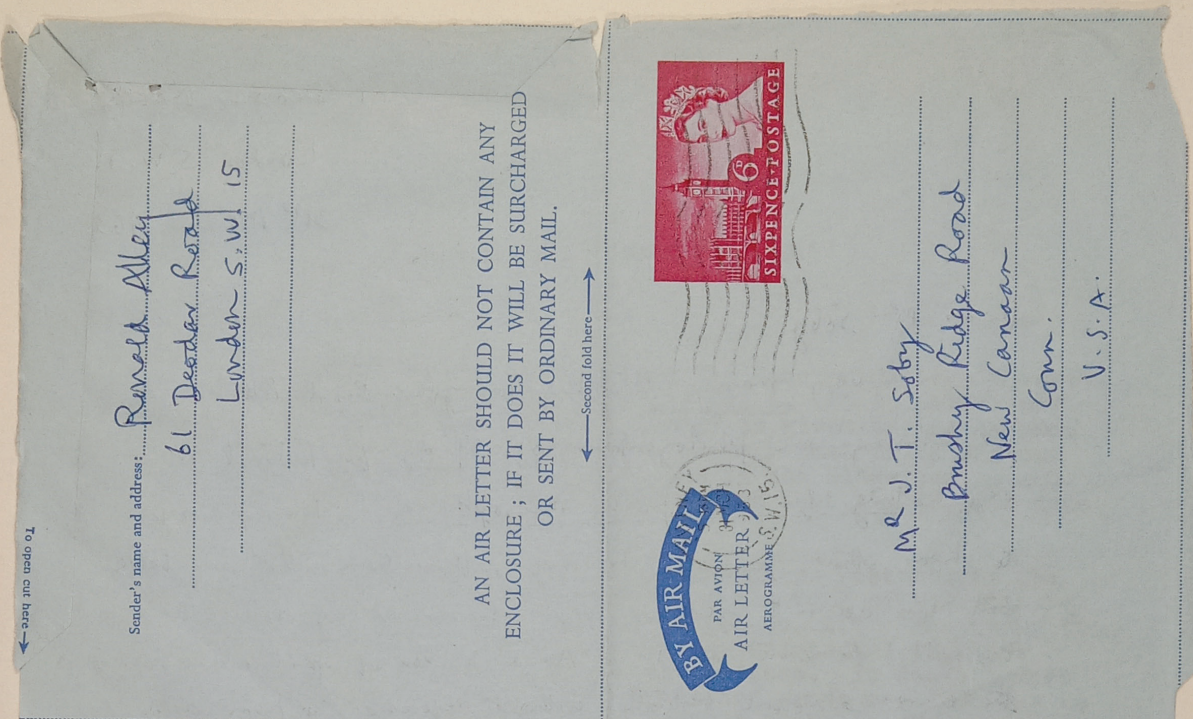 To open cut here
Sender's name and address:
Ronald Alley
61 Deodar Road
London S.W 15
AN AIR LETTER SHOULD NOT CONTAIN ANY
ENCLOSURE ; IF IT DOES IT WILL BE SURCHARGED
OR SENT BY ORDINARY MAIL.
Second fold here
BY AIR MAIL
PAR AVION
AIR LETTER
AEROGRAMME
S.W.15.
6D
SIXPENCE·POSTAGE
MR J. T. Soby
Brushy Ridge Road
New Canaan
Conn.
U.S.A.